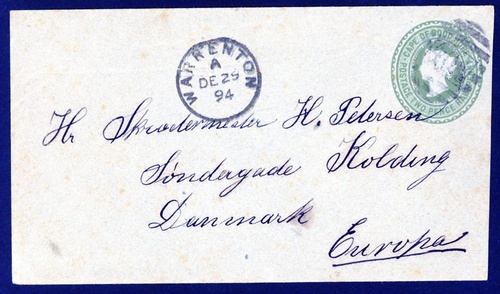 WARRENTON
A
DE 29
94
CAPE OF GOOD HOPE
Hr Skrædermester H. Petersen
Søndergade Kolding
Danmark
Europa